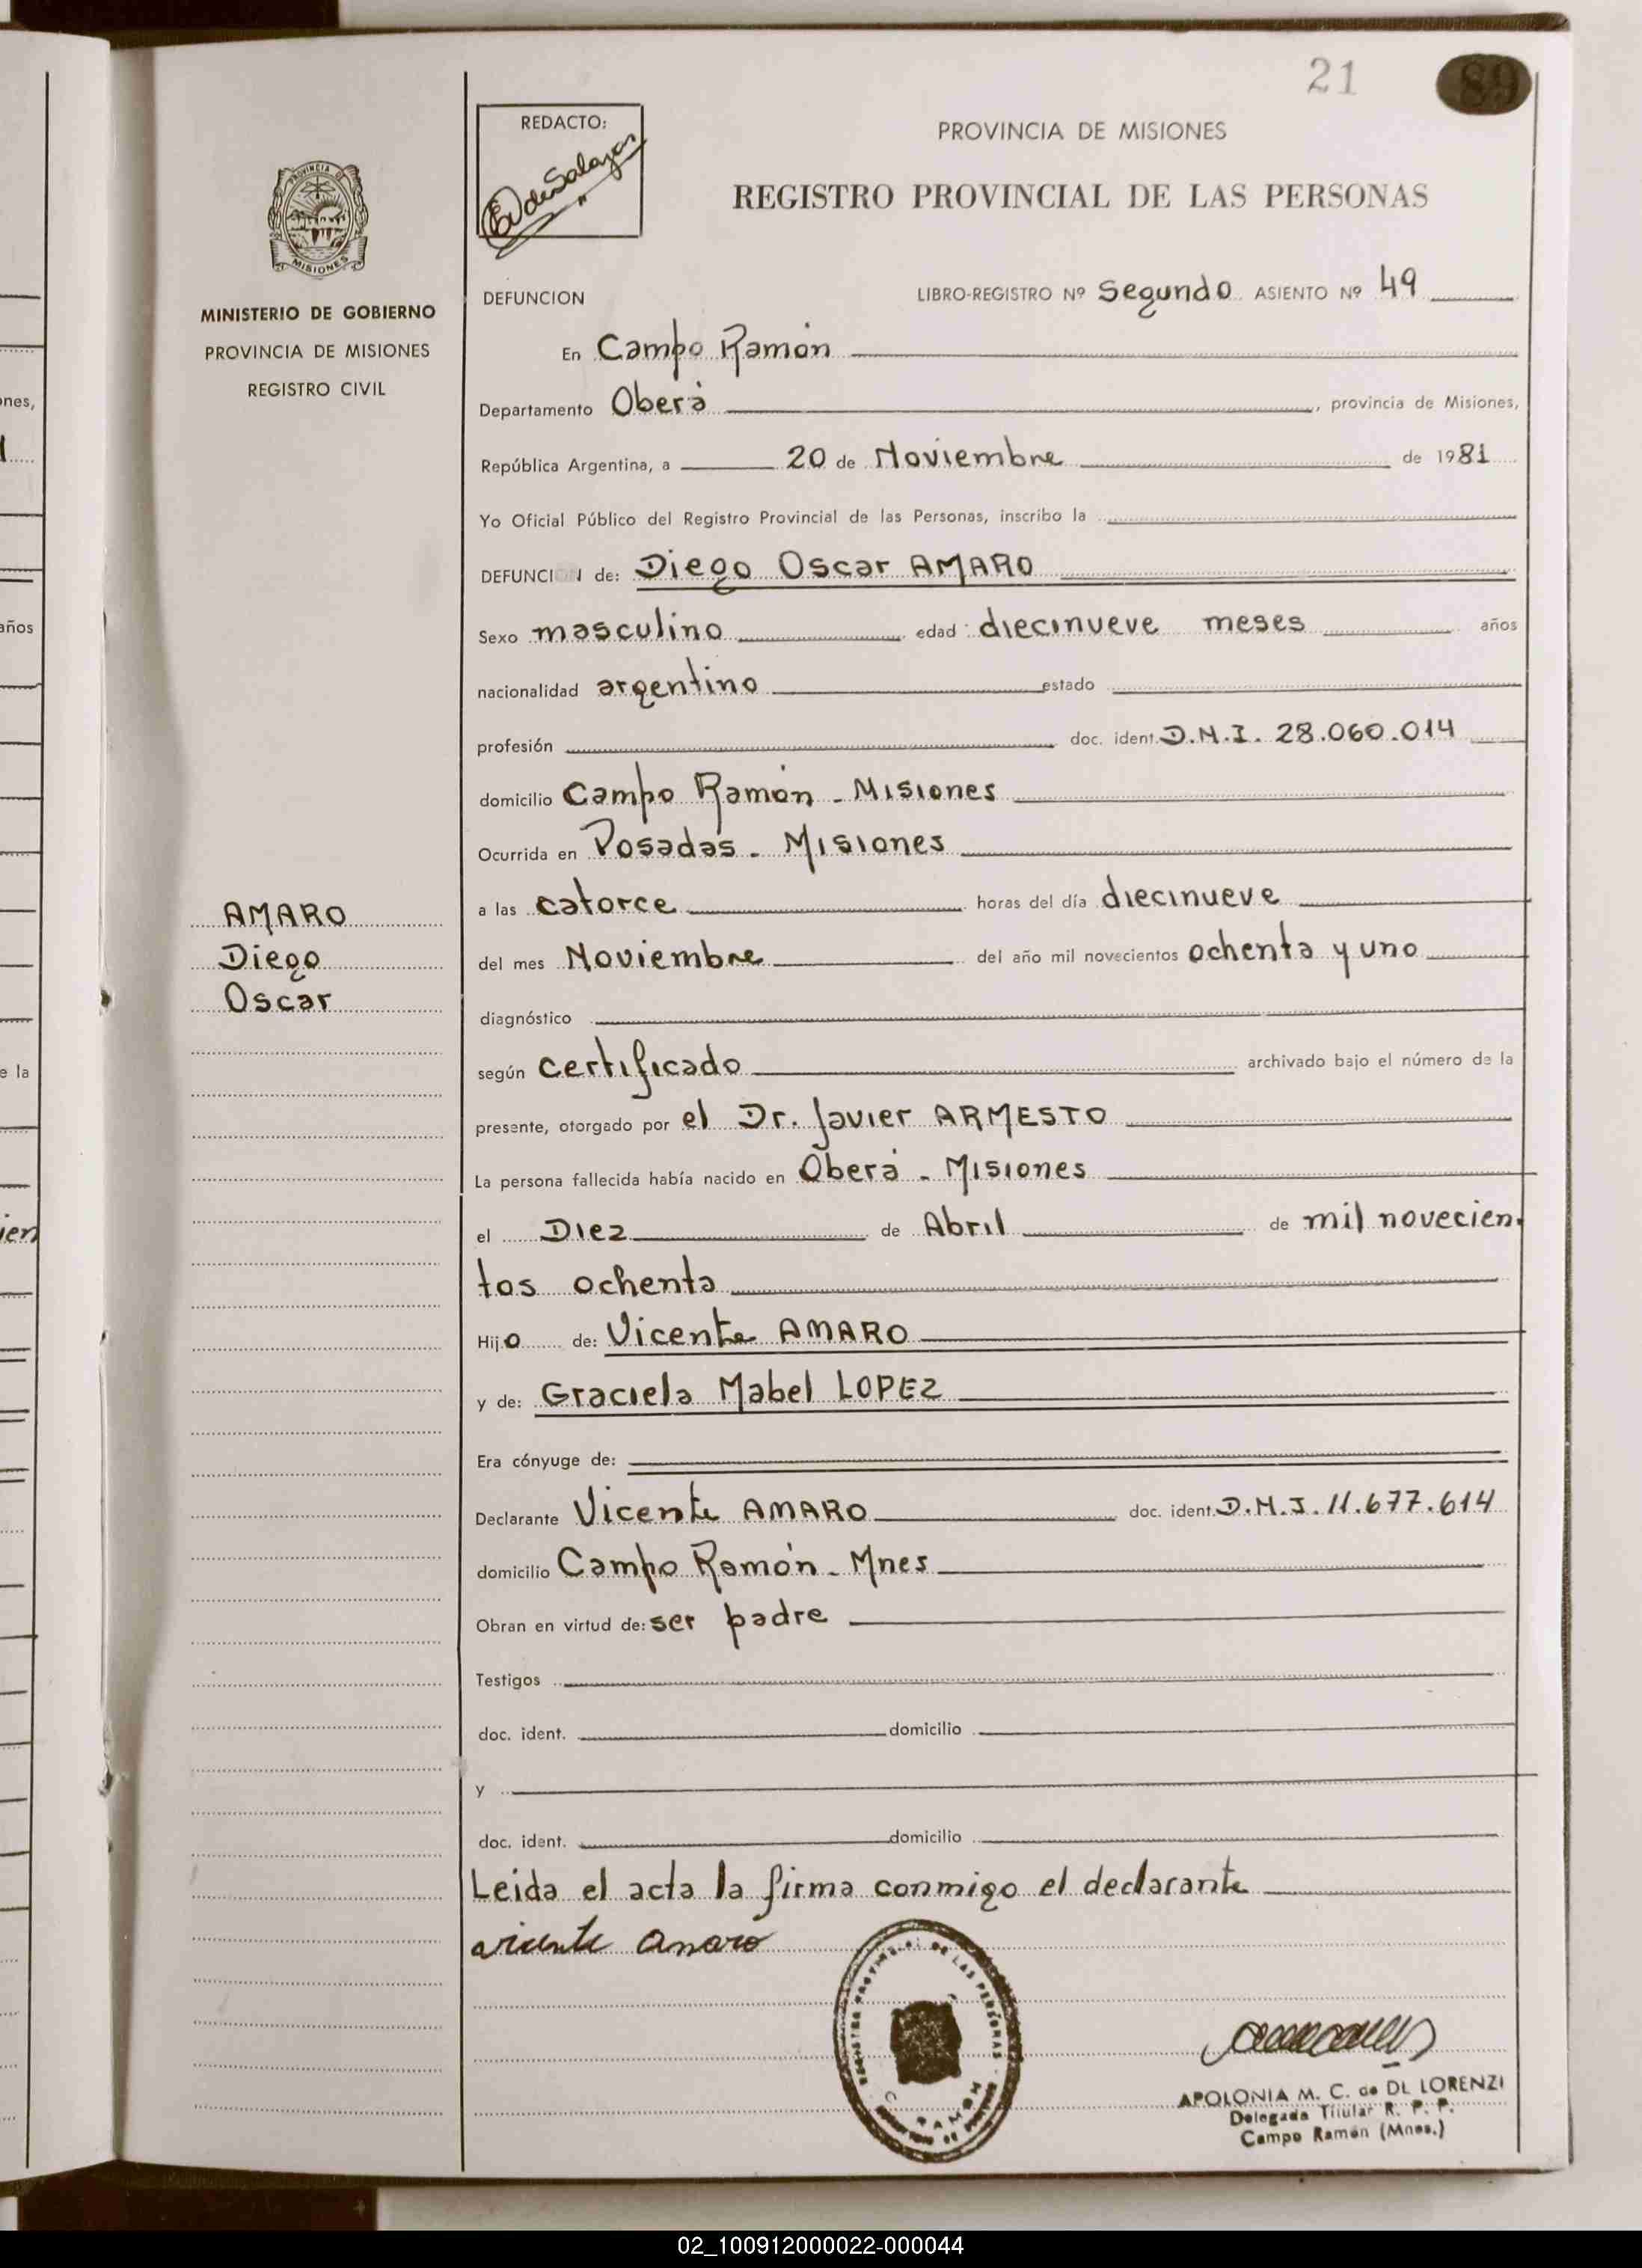 21
89
REDACTO:
PROVINCIA DE MISIONES
REGISTRO PROVINCIAL DE LAS PERSONAS
PROVINCIA DE
MISIONES
MINISTERIO DE GOBIERNO
PROVINCIA DE MISIONES
REGISTRO CIVIL
DEFUNCION LIBRO-REGISTRO Nº Segundo ASIENTO Nº 49
En Campo Ramón
Departamento Oberá, provincia de Misiones,
República Argentina, a 20 de Noviembre de 1981
Yo Oficial Público del Registro Provincial de las Personas, inscribo la
DEFUNCION de: Diego Oscar AMARO
Sexo masculino edad: diecinueve meses años
nacionalidad argentino estado
profesión doc. ident. D.N.I. 28.060.014
domicilio Campo Ramón - Misiones
Ocurrida en Posadas - Misiones
a las catorce horas del día diecinueve
del mes Noviembre del año mil novecientos ochenta y uno
AMARO
Diego
Oscar
diagnóstico
según certificado archivado bajo el número de la
presente, otorgado por el Dr. Javier ARMESTO
La persona fallecida había nacido en Oberá - Misiones
el Diez de Abril de mil novecien-
tos ochenta
Hijo de: Vicente AMARO
y de: Graciela Mabel LOPEZ
Era cónyuge de:
Declarante Vicente AMARO doc. ident. D.N.I. 11.677.614
domicilio Campo Ramón - Mnes
Obran en virtud de: ser padre
Testigos
doc. ident. domicilio
y
doc. ident. domicilio
Leida el acta la firma conmigo el declarante
vicente amaro
APOLONIA M. C. de DL LORENZI
Delegada Titular R. P. P.
Campo Ramón (Mnes.)
ones,
años
e la
ien
02_100912000022-000044